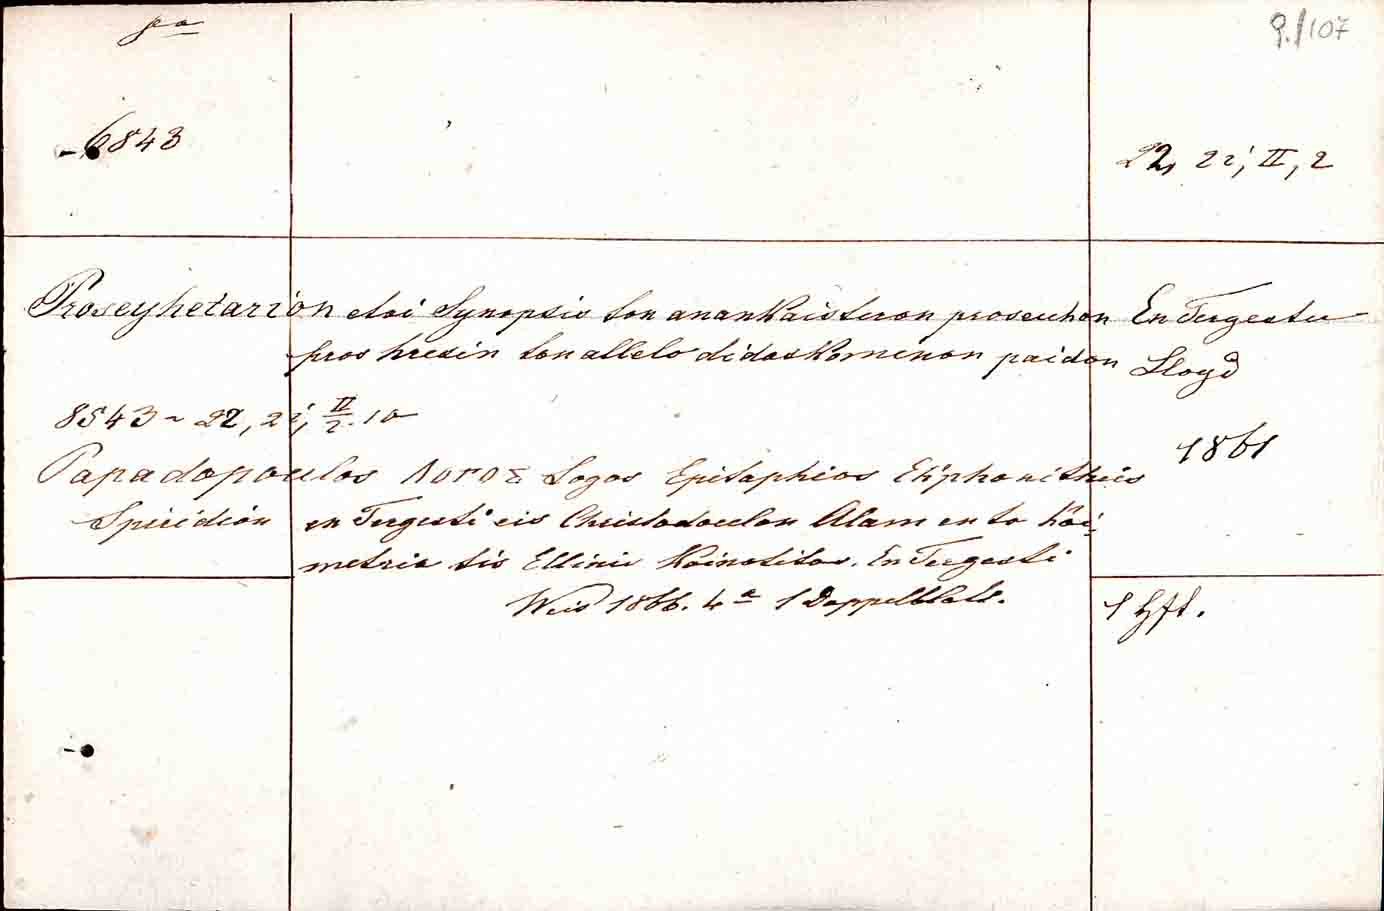 8°
9./107
6843
22, 22, II, 2
Proseyhetarion etoi Synopsis ton anankaisteron proseuchon En Tergestu
pros hresin ton allelodidaskomenon paidon Lloyd
8543 ~ 22, 22, II/2. 10
1861
Papadopoulos ΛΟΓΟΣ Logos Epitaphios Ekphonitheis
Spiridion en Tergesti eis Christodoulon Alam en to koi-
metrio tis Ellinis Koinotitos. En Tergesti
Weis 1866. 4° 1 Doppelblatt.
1 Hft.